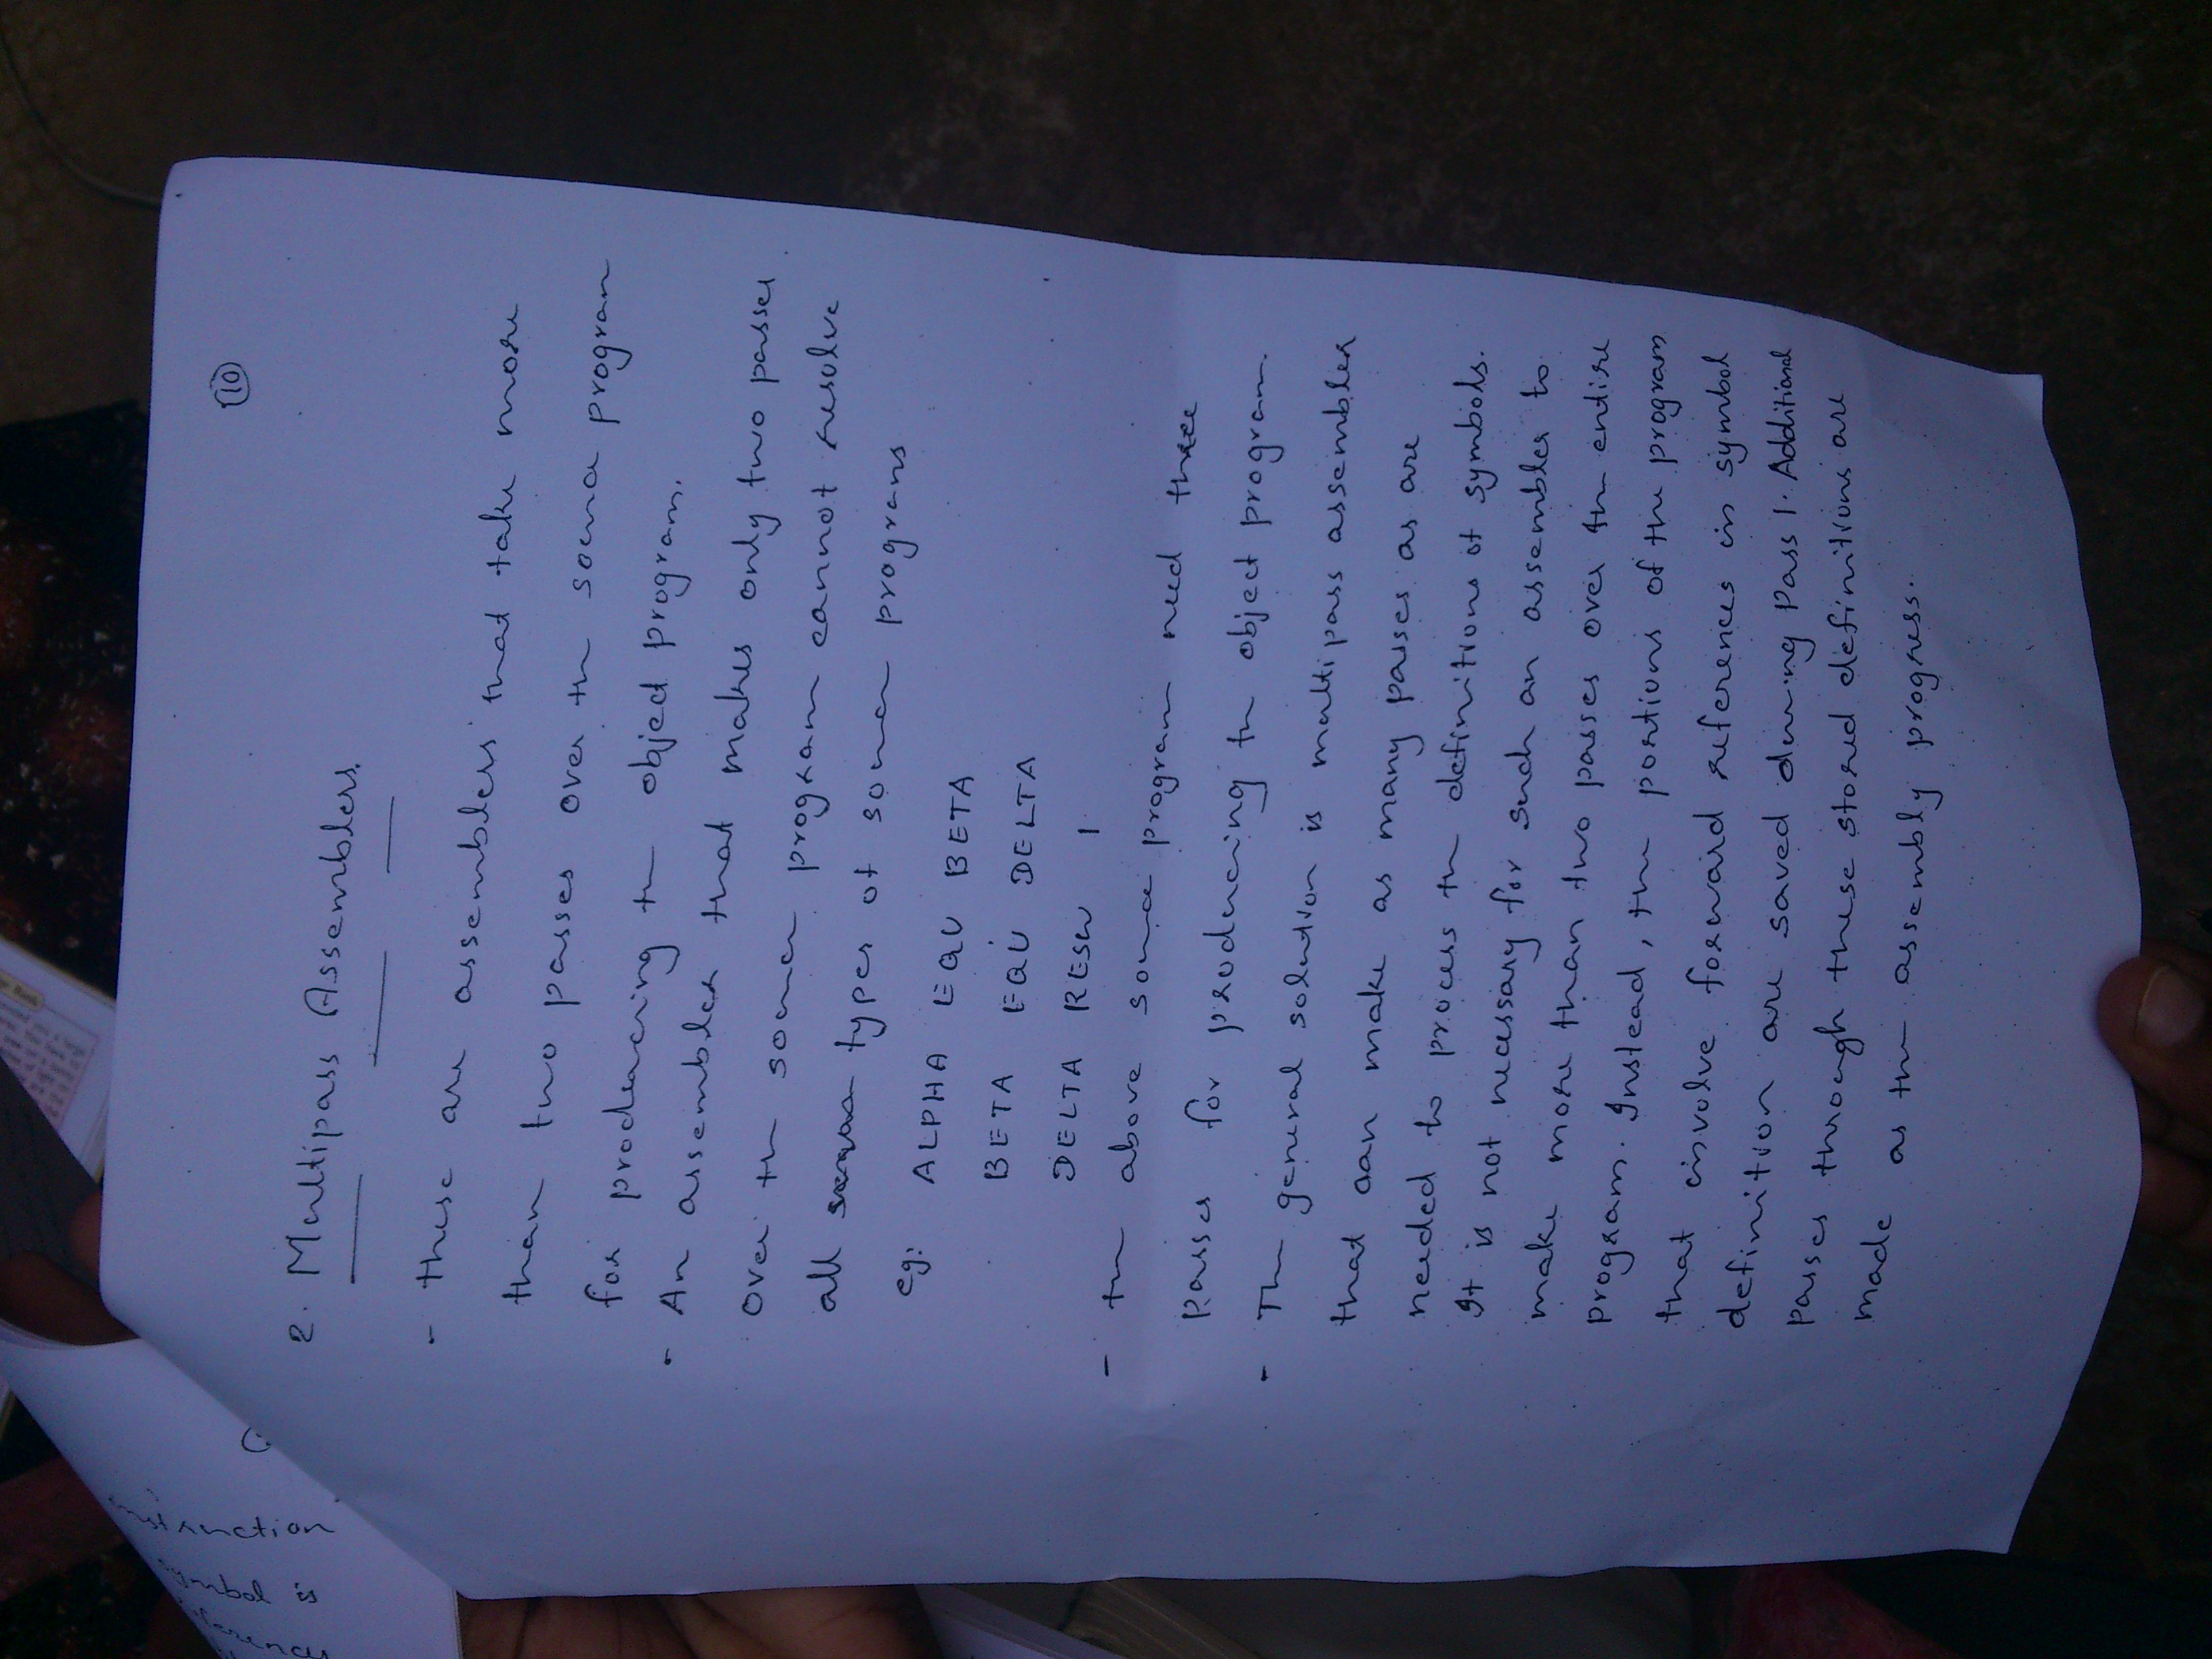 (10)
2. Multipass Assemblers.
- these are assemblers that take more
than two passes over the source program
for producing the object program.
- An assembler that makes only two passes
over the source program cannot resolve
all types of source programs
eg: ALPHA EQU BETA
BETA EQU DELTA
DELTA RESW 1
- the above source program need three
passes for producing the object program.
- The general solution is multipass assembler
that can make as many passes as are
needed to process the definitions of symbols.
It is not necessary for such an assembler to
make more than two passes over the entire
program. Instead, the portions of the program
that involve forward references in symbol
definition are saved during pass 1. Additional
passes through these stored definitions are
made as the assembly progress..
instruction
symbol is